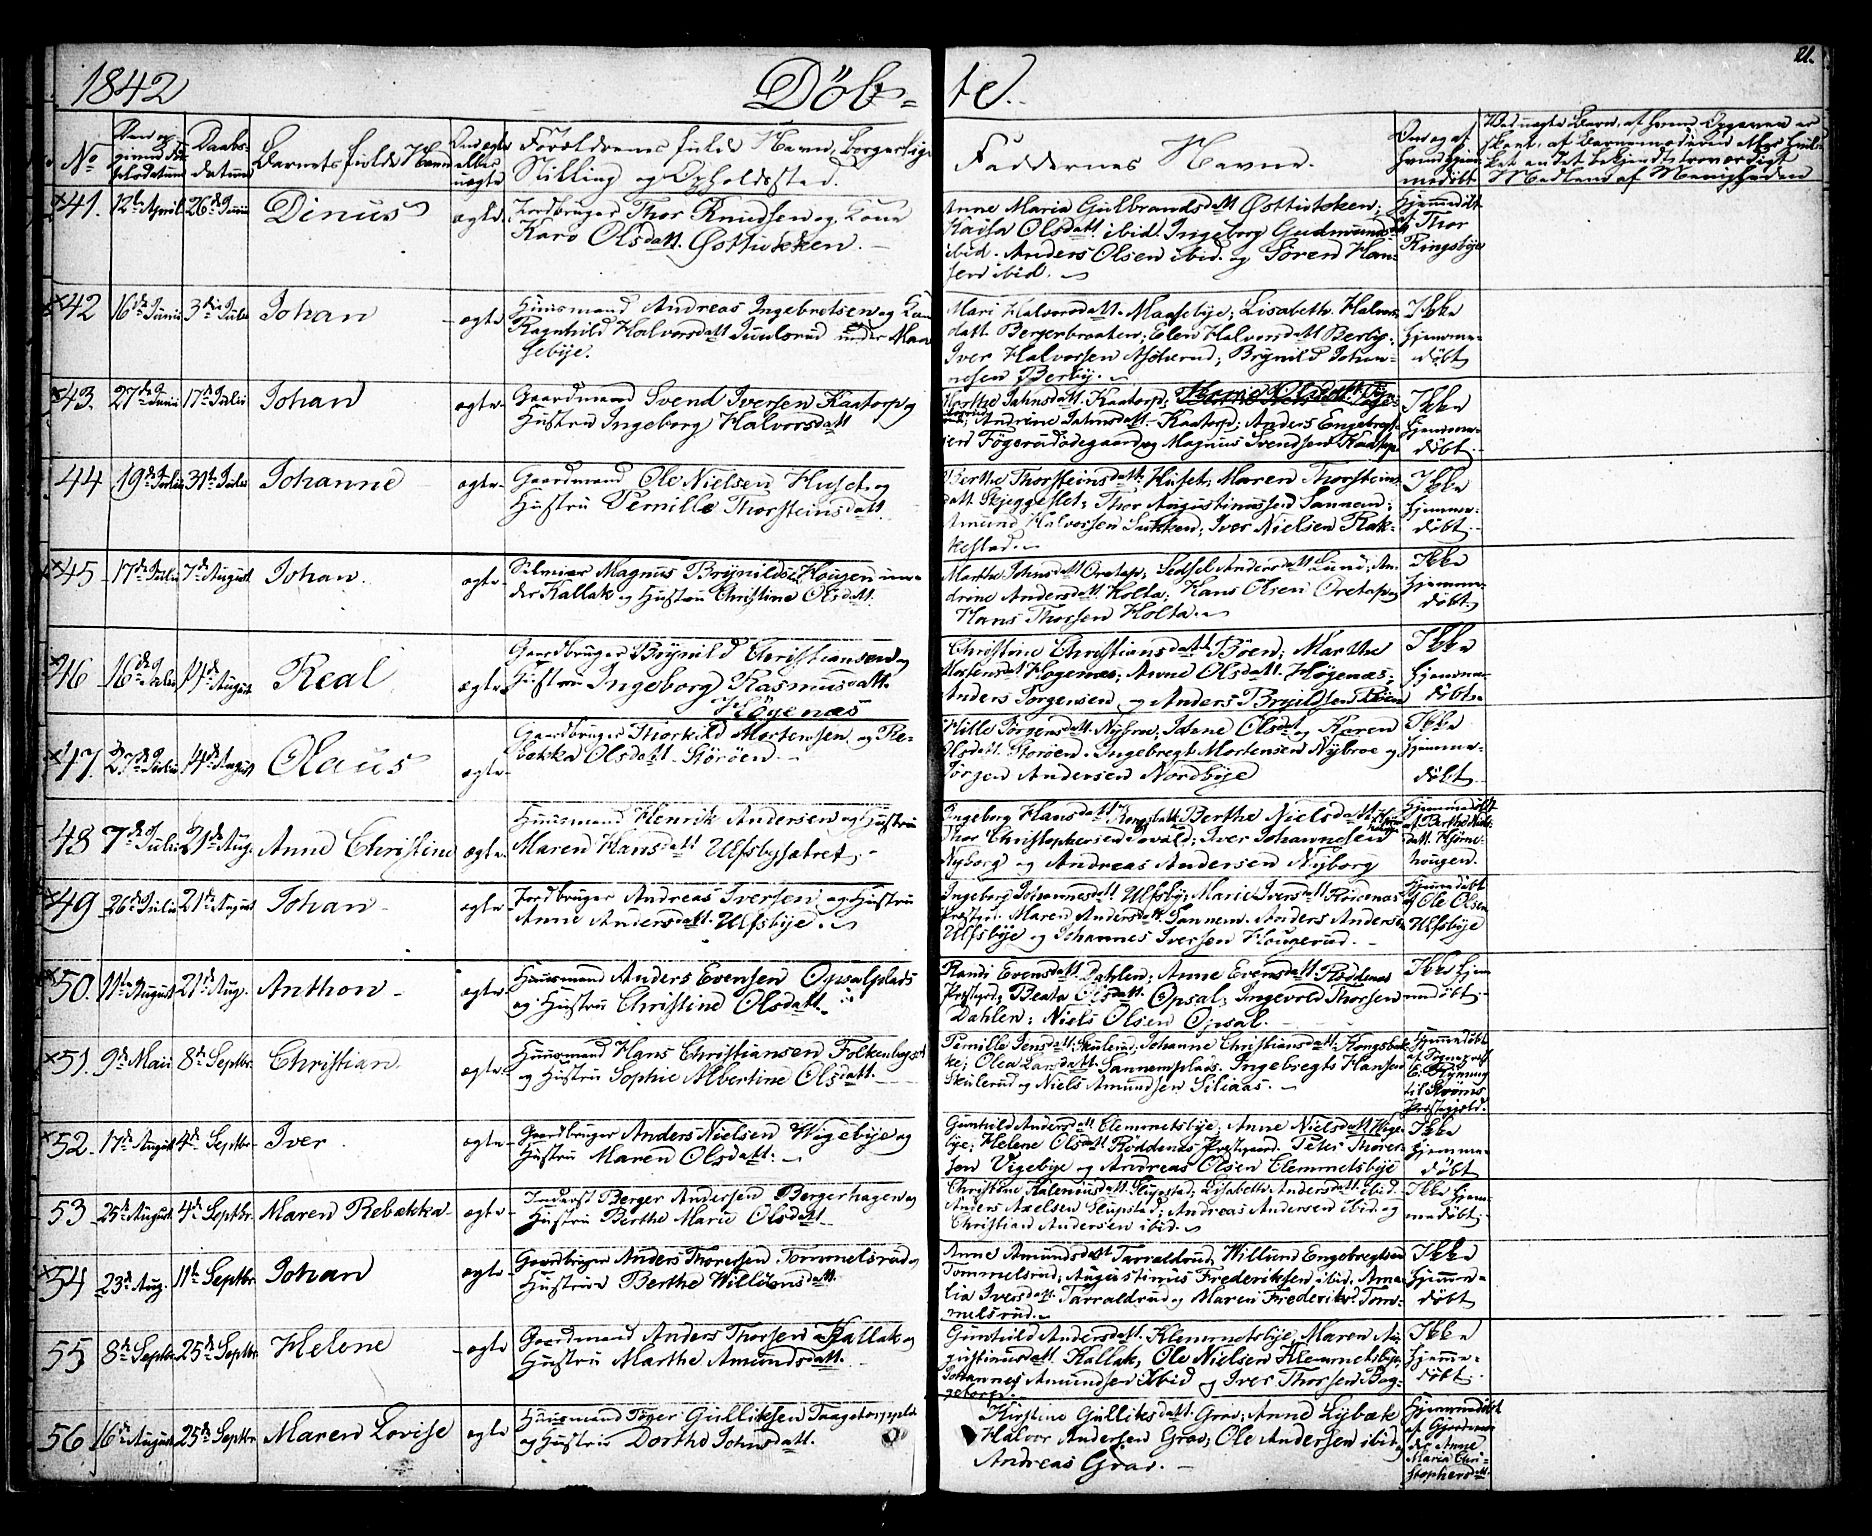 1842 Döb= te. 21.
No
Daabs-
datum
Barnets fulde Navn
ægte
eller
uægte
Forældrenes fulde Navn, Borgerlige
Stilling og Opholdssted.
Faddernes Navne.
hjem
medöbt
skent, af Barnemoderen
Medlem af Menigheden
41. 12te April 26de Junii Dinus ægte
Jordbruger Thor Knudsen og Kone
Karo Olsdatt. Østtvidtken. —
Anne Maria Gulbrandsdatt
Kaisa Olsdatt ibid Ingeborg Gudmunds
ibid. Anders Olsen ibid. og Sören Han-
sen ibid.
Hjemmedöbt
af Thor
Ringsbye
42 16de Junii 3die Julii Johan ægte
Huusmand Andreas Ingebretsen og Kone
Ragnhild Halvorsdatt under Maa
sebye.
Mari Halvorsdatt. Maasebye; Lisabeth Halvors
datt Bergerbraaten; Elen Halvorsdatt Berby;
Iver Halvorsen; Brynild Johan-
nesen Berby.
Ikke
hjemme-
döbt
43. 27de Junii 17de Julii Johan ægte
Gaardmand Svend Iversen Kaatorp og
Hustru Ingeborg Halvorsdatt
Marthe Johnsdatt. Kaatorp;
Andrine Kaatorp; Anders Engebregt-
sen Fögerudödegaard og Magnus Svendsen Kaatorp
Ikke
hjemme-
döbt
44 19de Julii 31te Julii Johanne ægte
Gaardmand Ole Nielsen Huset og
Hustru Pernille Thorsteinsdatt.
Berthe Thorsteinsdatt. Huset, Maren Thorsteins
datt. Skjeggeslet; Thor Augustinussen Sannem;
Amund Halvorsen Sukken; Iver Nielsen Rak-
kestad.
Ikke
hjemme-
döbt
45 17de Julii 7de August Johan. ægte
Magnus Brynilds. Hougen un-
der Kallak og Hustru Christine Olsdatt.
Marthe Johnsdatt Oretorp; Sedsel Andersdatt Lund; An-
drine Andersdatt Holta; Hans Olsen Oretorp og
Hans Thorsen Holta.
Ikke
hjemme-
döbt
46 16de Julii 14de August Real ægte
Gaardbruger Brynild Christiansen og
Hustru Ingeborg Rasmusdatt.
Höyenæs
Christine Christiansdatt Böen; Marthe
Mortensdat Höyenæs; Anne Olsdatt. Höyenæs;
Anders Torgensen og Anders Brynildsen Böen
Ikke
hjemme-
döbt.
47. 27de Julii 14de August Olaus ægte
Gaardbruger Thorkild Mortensen og Re-
bekka Olsdatt. Störöen.
Hille Jörgensdatt. Nybroe, Janne Olsdat og Karen
Olsdatt. Storöen. Ingebregt Mortensen Nybroe og
Jörgen Andersen Nordbye
Ikke
hjemme-
döbt.
48 7de Julii 21de Aug. Anne Christine ægte
Huusmand Henrik Andersen og Hustru
Maren Hansdatt Ulfsbysætret.
Ingeborg Hansdatt Berthe Nielsdatt
Thor Christophersen; Iver Johannesen
Nyborg og Andreas Andersen Nyborg
Hjemmedöbt
af Berthe Niels
datt. Hjörne-
hougen.
49 26de Julii 21de August Johan ægte
Jordbruger Andreas Iversen og Hustru
Anne Andersdatt. Ulfsbye.
Ingeborg Johannesdatt Ulfsby; Marie Iversdatt Rödenæs
Prestgrd. Maren Andersdatt Sannem. Anders Anders
Ulfsbye og Johannes Iversen Hougerud.
Hjemmedöbt
af Ole Olsen
Ulfsbye
50. 11te August 21de Aug. Anthon ægte
Huusmand Anders Evensen Opsalplads
og Hustru Christine Olsdatt.
Randi Evensdatt. Dahlen; Anne Evensdatt. Röddenæs
Prestgrd; Beata Olsdatt. Opsal; Ingevold Thorsen
Dahlen; Niels Olsen Opsal.
Ikke hjem
medöbt
51. 9de Maii 8de Septbr. Christian ægte
Huusmand Hans Christiansen
og Hustru Sophie Albertine Olsdatt.
Pernille Jensdatt. Skulerud; Johanne Christiansdatt. Kongsbak-
ke; Olea Larsdatt. Sannemplads. Ingebregt Hansen
Skulerud og Niels Amundsen Siliaas.
Hjemmedöbt
af Sognepræst
til Strøms
Prestegjeld.
52. 17de August 4de Septbr. Iver ægte
Gaardbruger Anders Nielsen Wigebye og
Hustru Maren Olsdatt.
Gunhild Andersdatt. Clemmetsbye, Anne Nielsdatt. Wige-
bye; Helene Olsdatt Röddenes Prestgaard. Peter Thorer-
sen Vigebye og Andreas Olsen Clemmetsbye
Ikke
hjemme-
döbt
53 25de August 4de Septbr. Maren Rebekka ægte
Inderst Berger Andersen Bergerhagen og
Hustru Berthe Marie Olsdatt
Christine Slupstad; Lisabeth Andersdatt ibid.
Anders Axelsen Slupstad; Andreas Andersen ibid. og
Christian Andersen ibid.
Ikke hjem-
medöbt.
54 23de Aug. 11te Septbr. Johan ægte
Gaardbruger Anders Thoresen Tommelsrud og
Hustrue Berthe Williamsdatt.
Anne Amundsdatt Tarraldrud, Willum Engebregtsen
Tommelsrud, Augustinus Frederiksen ibid. Ama-
lia Iversdatt. Tarraldrud og Maren Frederiksd. Tom-
melsrud.
Ikke
hjemme-
döbt
55 8de Septbr. 25de Septbr. Helene ægte
Gaardmand Anders Thorsen Kallak og
Hustru Marthe Amundsdatt.
Gunhild Andersdatt. Klemmetsbye, Maren Au-
gustinusdatt. Kallak, Ole Nielsen Klemmetsbye,
Johannes Amundsen ibid og Iver Thorsen Bag-
getorp.
Ikke
hjemme-
döbt.
56 16de August 25de Septbr. Maren Lovise ægte
Huusmand Gulliksen
og Hustrue Dorthe Johnsdatt.
Kirstine Gulliksdatt. Grav; Anne Lybæk
Halvor Andersen Grav; Ole Andersen ibid.
Andreas Grav.
Hjemmedöbt
af Gjordemo
der Anne
Maria Chri-
stophersdatt.